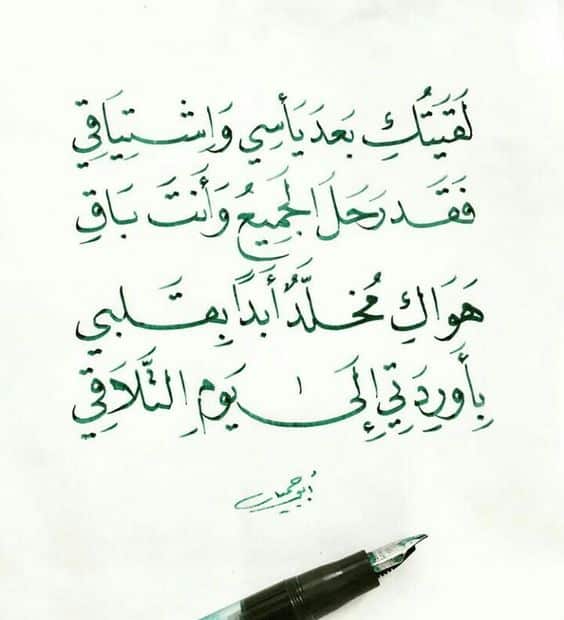 لَقَيَتُكِ بَعدَ يَأسِي وَاِشتِيَاقِي
فَقَد رَحَلَ الجَمِيعُ وَأَنتَ بَاقِ
هَوَاكِ مُخلَّدٌ أَبَدًا بِقَلبي
بِأَورِدَتِي إِلَى يَومِ التَّلَاقِي